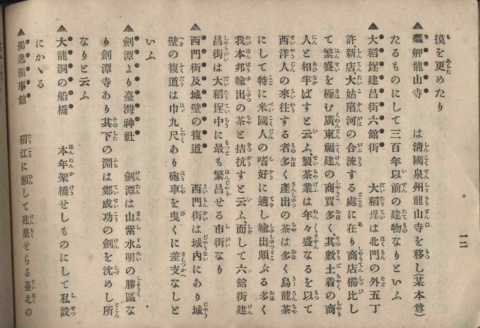 十二
摸を更めたり
▲艋舺龍山寺　は清國泉州龍山寺を移し(某本尊)
たるものにして三百年以前の建物なりといふ
▲大稻埕建昌街六館街　大稻埕は北門の外五丁
許新店大姑陷河の合流する處に在り商店櫛比し
て繁盛を極む廣東福建の商賈多く其數土着の商
人と相半ばすと云ふ製茶業は年々盛なるを以て
西洋人の來往する者多く產出の茶は多く烏龍茶
にして特に米國人の嗜好に適し輸出頗ぶる多く
我本邦輸出の茶と拮抗すと云ふ而して六館街建
昌街は大稻埕中に最も繁昌せる市街なり
▲西門街及城壁の複道　西門街は城內にあり城
壁の複道は巾九尺あり砲車を曳くに差支なしと
いふ
▲劍潭より臺灣神社　劍潭は山紫水明の勝區な
り劍潭寺あり其下の淵は鄭成功の劍を沈めし所
なりと云ふ
▲大龍洞の船橋　本年架橋せしものにして私設
にかゝる
▲領事館　稻江に瀕して建築せらる臺北の